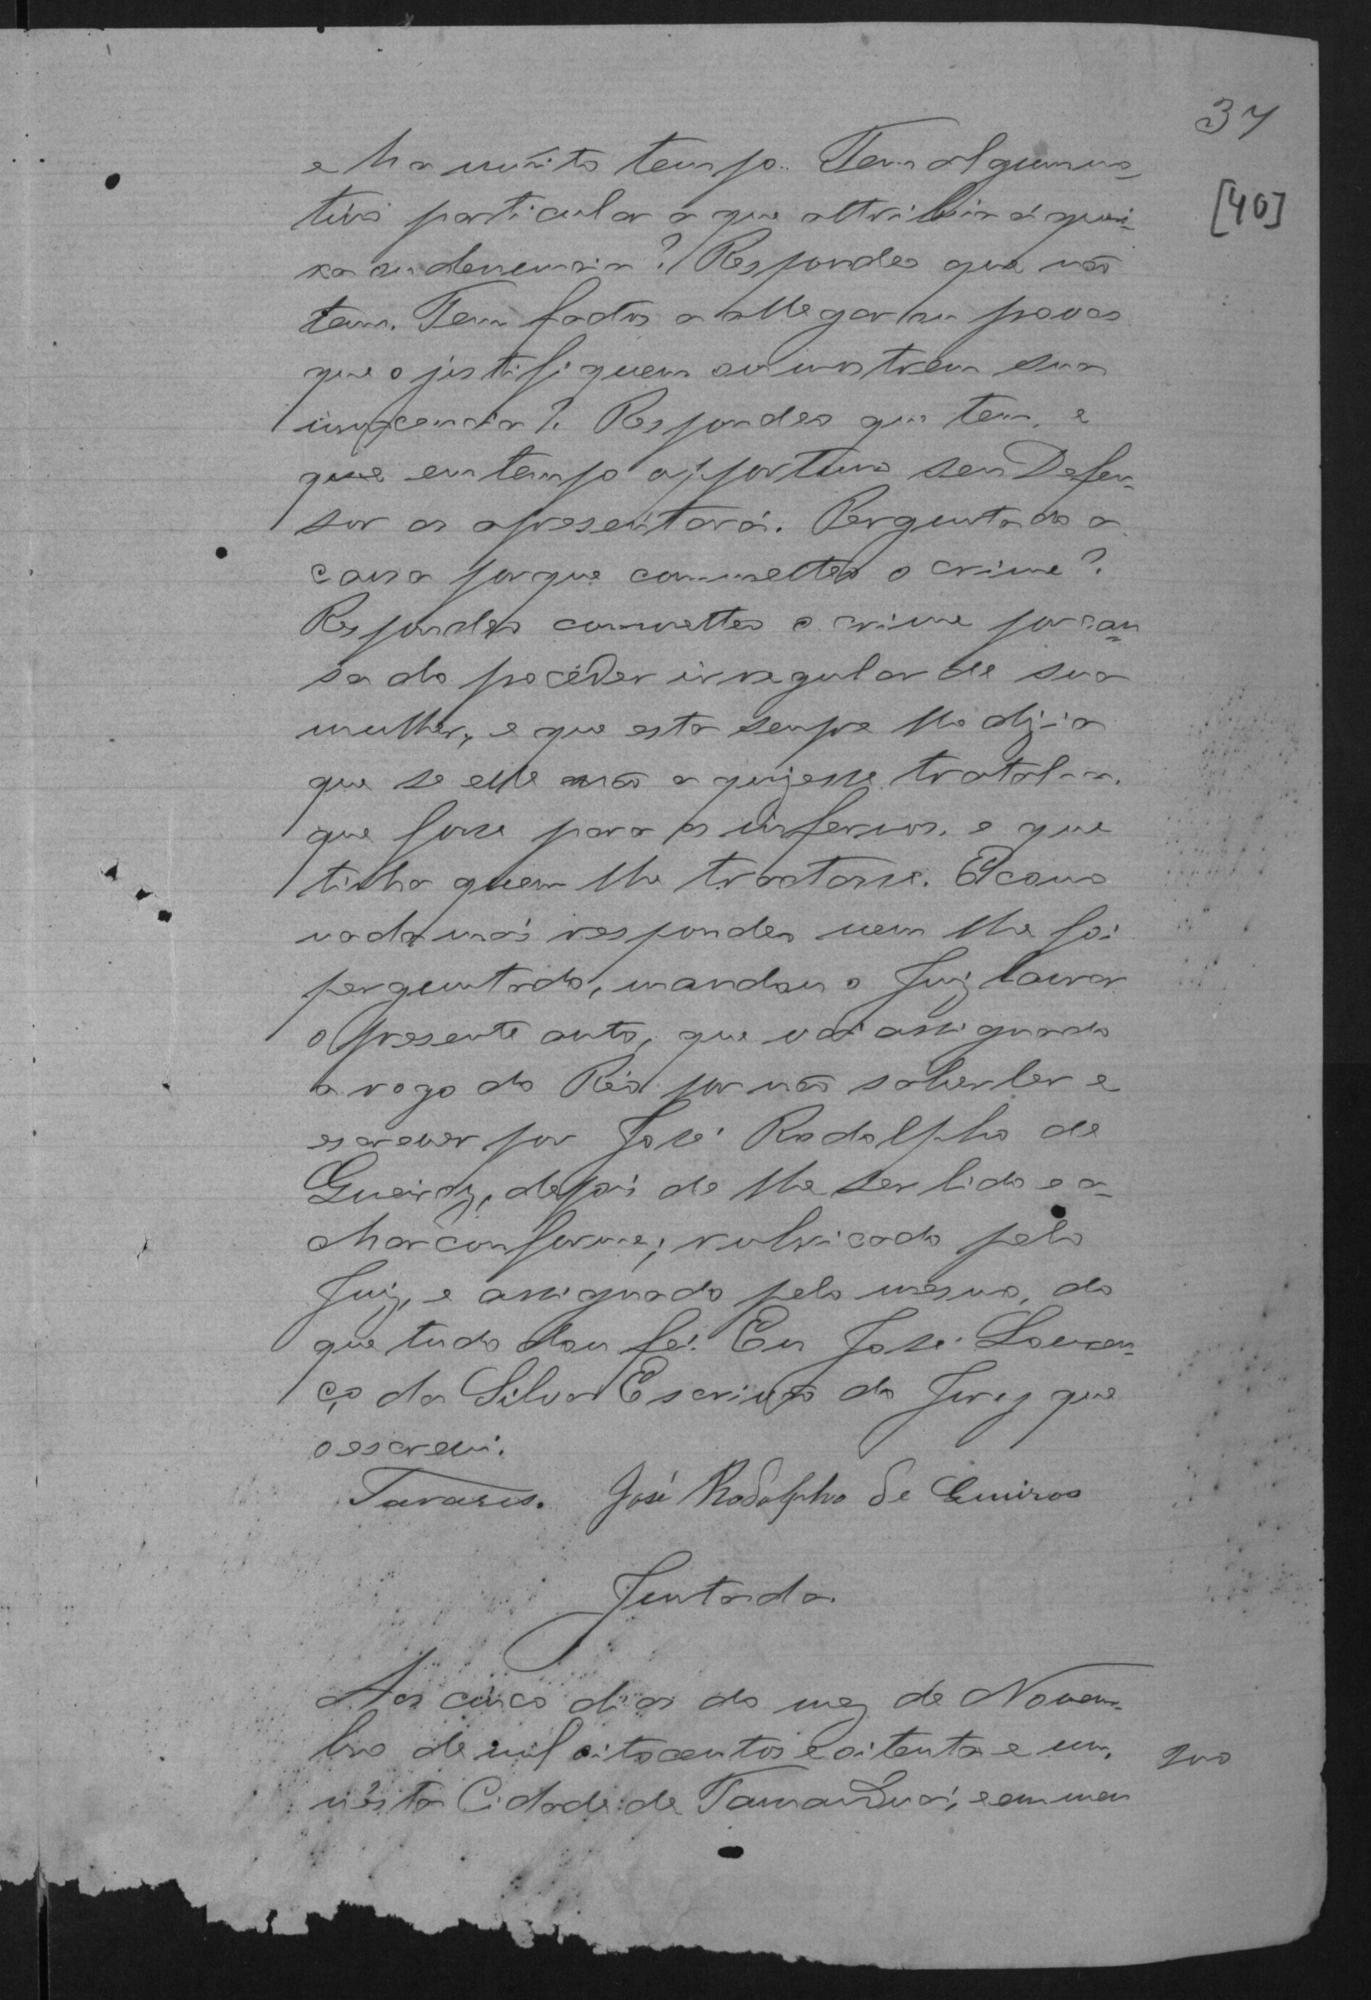 37
[40]
e ha muito tempo. Tem algum mo-
tivo particular a que attribúa á quei-
xa ou denuncia? Respondeo que não
tem. Tem factos a allegar ou provas
que o justifiquem ou mostrem sua
innocencia? Respondeo que tem, e
que em tempo opportuno seu Defen-
sor os apresentará. Perguntado a
causa porque commetteo o crime?
Respondeo commetteo o crime por cau-
sa do procêder irregular de sua
mulher, e que esta sempre lhe dizia
que se elle não a quizesse tratala
que fosse para os infernos, e que
tinha quem lhe tractasse. E como
nada más respondeo nem lhe foi
perguntado, mandou o Juiz lavrar
o presente auto, que vai assignado
a rogo do Réo por não saber ler e
escrever por José Rodolpho de
Gueiroz, depois de lhe ser lido e a-
char conforme; rubricado pelo
Juiz, e assignado pelo mesmo, do
que tudo dou fé. Eu José Louren-
ço da Silva Escrivão do Jury que
o escrevi.
Tavares. José Rodolpho de Gueiros
Juntada
Aos cinco dias do mez de Novem-
bro de mil oitocentos e oitenta e um,
nésta Cidade de Tamanduá, e em meu
200